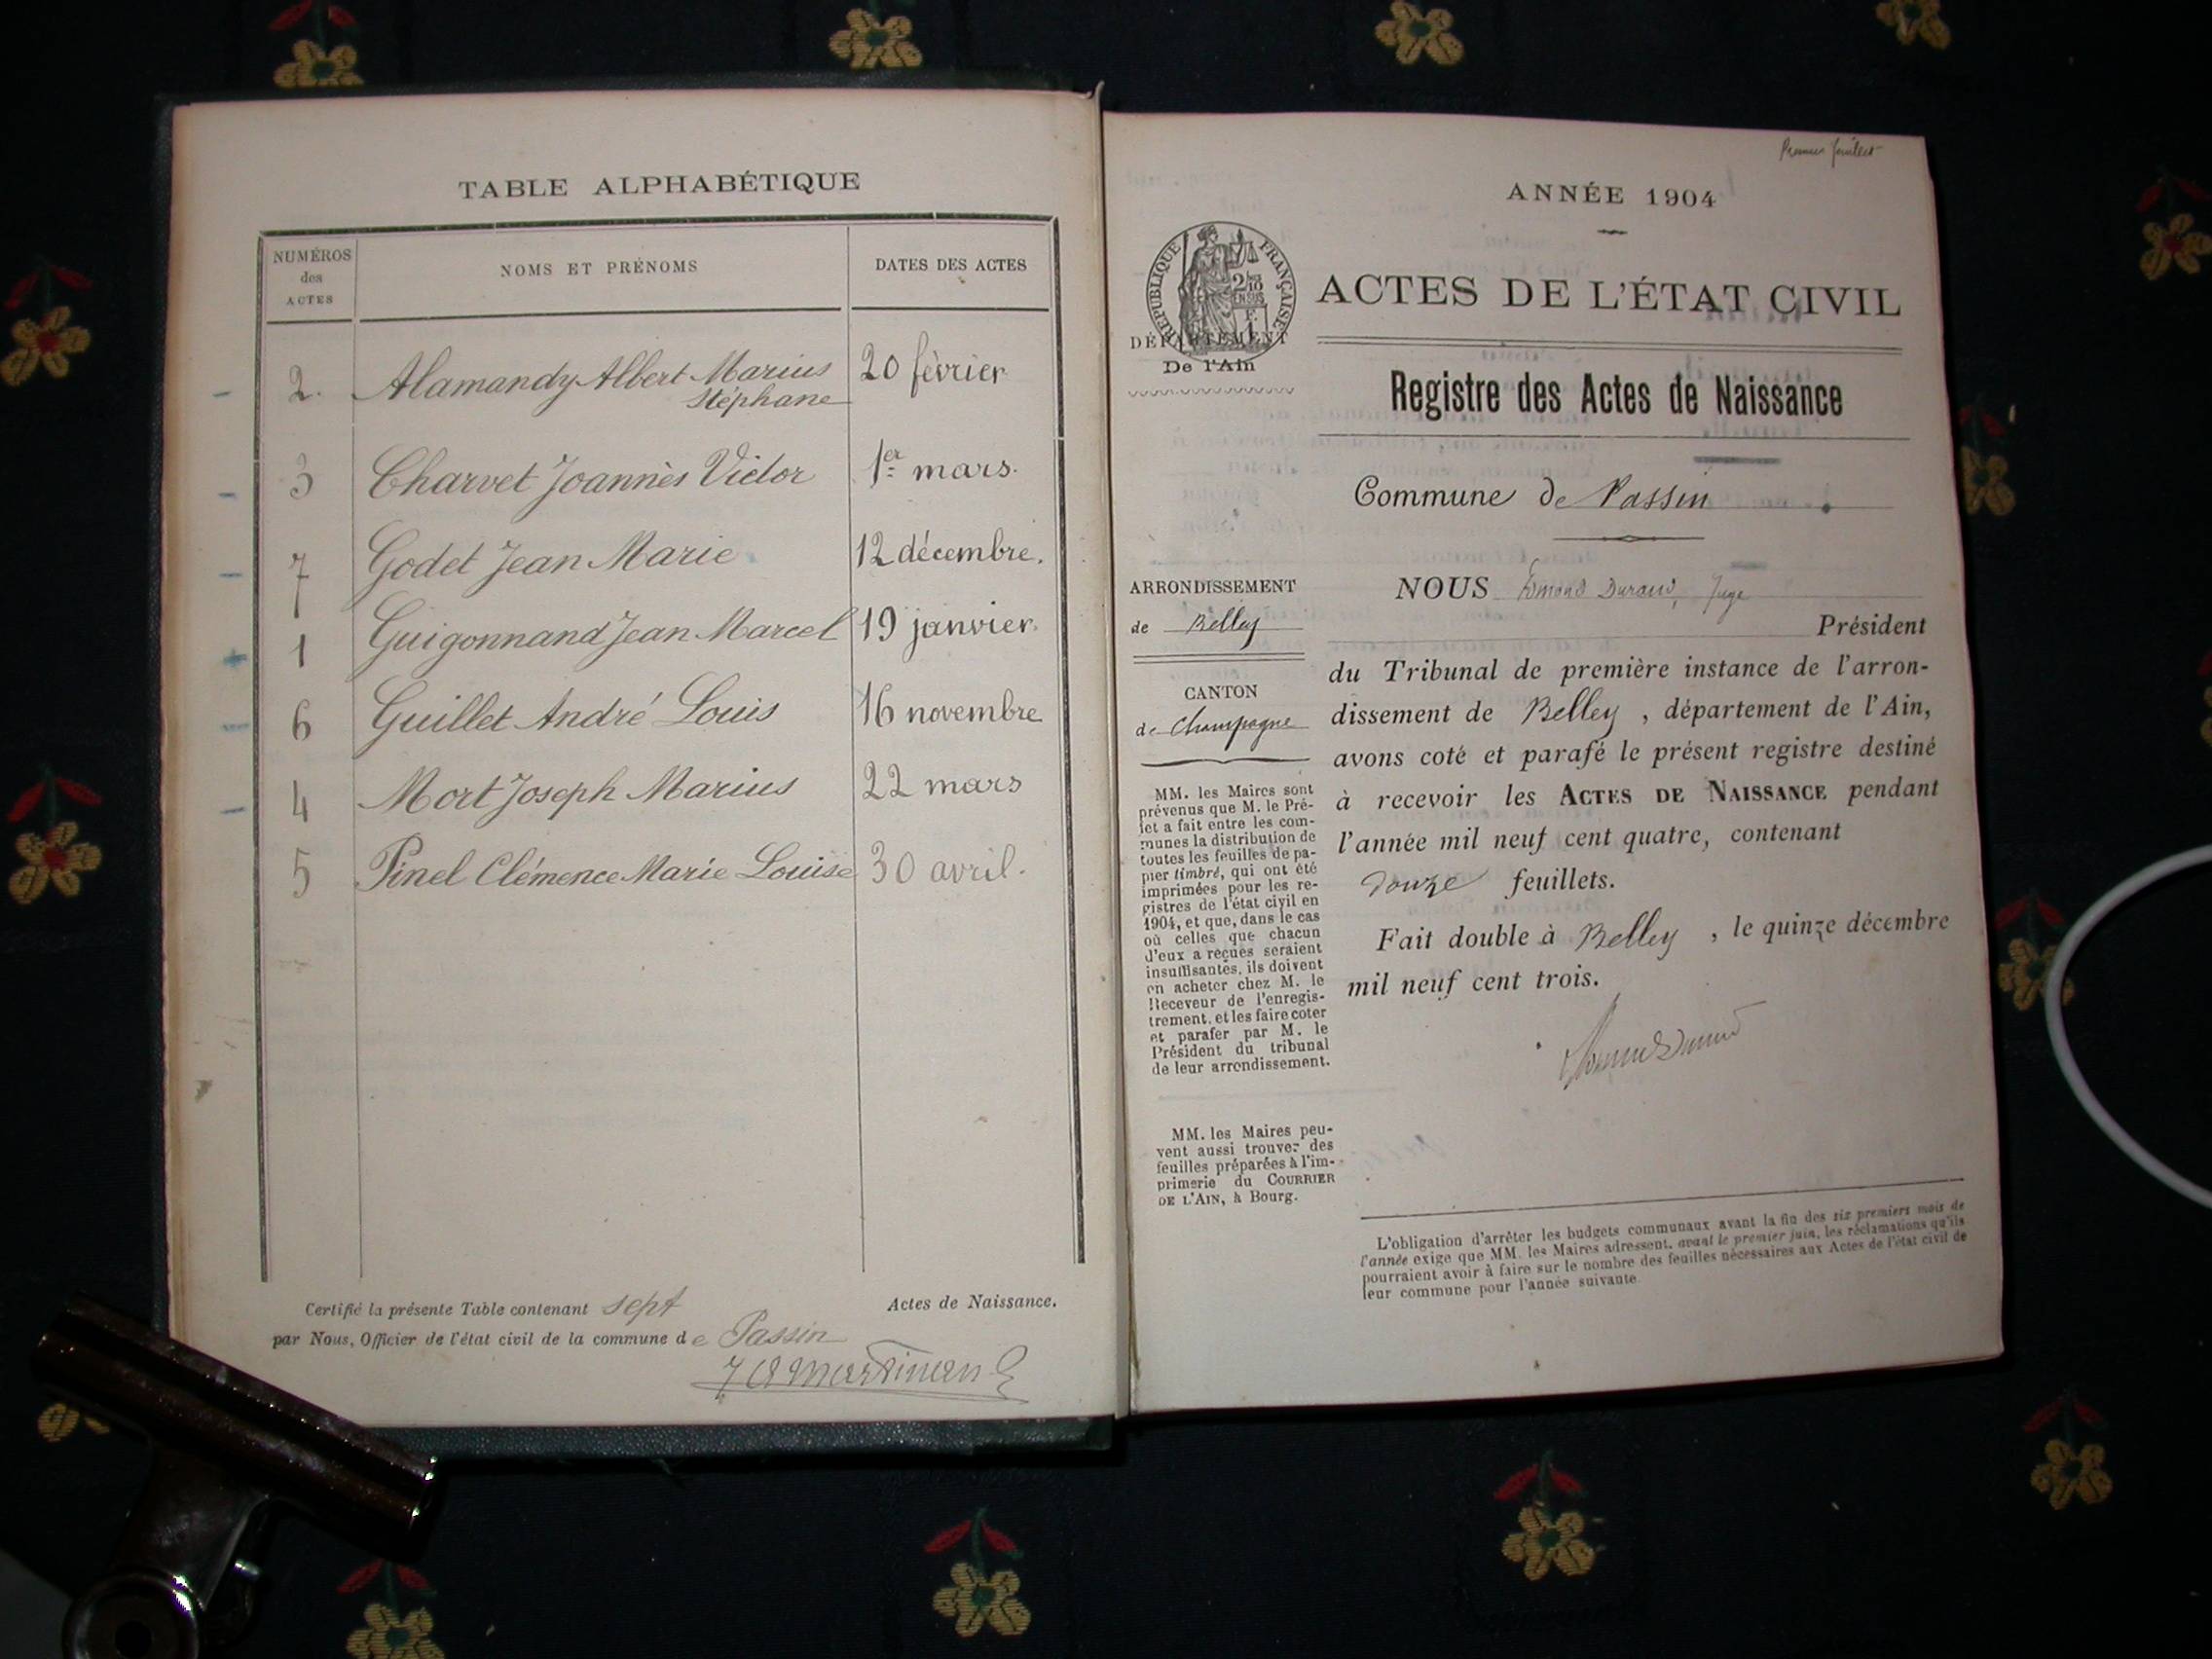 TABLE ALPHABÉTIQUE
NUMÉROS
des
ACTES
NOMS ET PRÉNOMS
DATES DES ACTES
2. Alamandy Albert Marius 20 février
Stéphane
3 Charvet Joannès Victor 1er mars.
7 Godet Jean Marie 12 décembre.
1 Guigonnand Jean Marcel 19 janvier.
6 Guillet André Louis 16 novembre
4 Mort Joseph Marius 22 mars
5 Pinel Clémence Marie Louise 30 avril.
Certifié la présente Table contenant sept Actes de Naissance.
par Nous, Officier de l'état civil de la commune de Passin
Premier feuillet
ANNÉE 1904
RÉPUBLIQUE FRANÇAISE
ACTES DE L'ÉTAT CIVIL
DÉPARTEMENT
De l'Ain
Registre des Actes de Naissance
Commune de Passin
ARRONDISSEMENT
de Belley
CANTON
de Champagne
MM. les Maires sont
prévenus que M. le Pré-
fet a fait entre les com-
munes la distribution de
toutes les feuilles de pa-
pier timbré, qui ont été
imprimées pour les re-
gistres de l'état civil en
1904, et que, dans le cas
où celles que chacun
d'eux a reçues seraient
insuffisantes, ils doivent
en acheter chez M. le
Receveur de l'enregis-
trement, et les faire coter
et parafer par M. le
Président du tribunal
de leur arrondissement.
MM. les Maires peu-
vent aussi trouver des
feuilles préparées à l'im-
primerie du COURRIER
DE L'AIN, à Bourg.
NOUS Edmond Durand, Juge
Président
du Tribunal de première instance de l'arron-
dissement de Belley, département de l'Ain,
avons coté et parafé le présent registre destiné
à recevoir les ACTES DE NAISSANCE pendant
l'année mil neuf cent quatre, contenant
douze feuillets.
Fait double à Belley, le quinze décembre
mil neuf cent trois.
L'obligation d'arrêter les budgets communaux avant la fin des six premiers mois de
l'année exige que MM. les Maires adressent, avant le premier juin, les réclamations qu'ils
pourraient avoir à faire sur le nombre des feuilles nécessaires aux Actes de l'état civil de
leur commune pour l'année suivante.